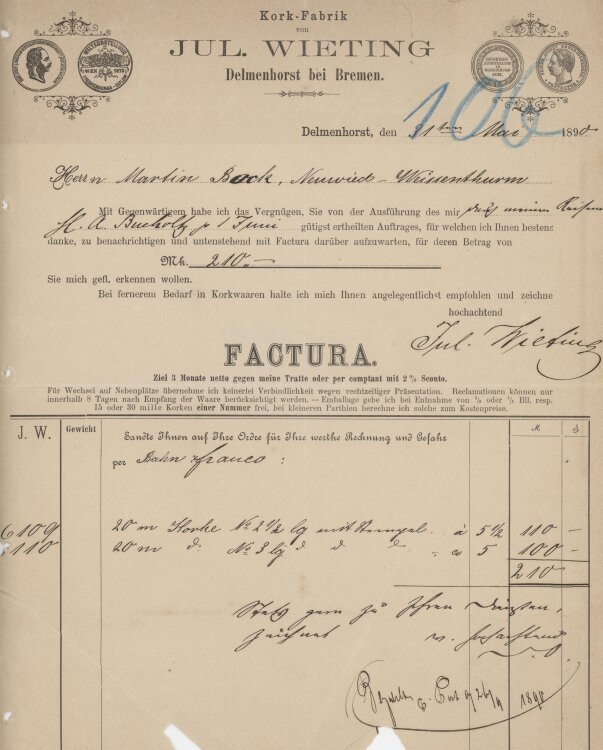 Kork-Fabrik
von
JUL. WIETING
Delmenhorst bei Bremen.
WELTAUSSTELLUNG
WIEN 1873
106
Delmenhorst, den 31ten Mai 1890
Herrn Martin Bock, Neuwied-Weissenthurm
Mit Gegenwärtigem habe ich das Vergnügen, Sie von der Ausführung des mir durch meinen Reisenden
H. A. Bucholtz p 1 Juni gütigst ertheilten Auftrages, für welchen ich Ihnen bestens
danke, zu benachrichtigen und untenstehend mit Factura darüber aufzuwarten, für deren Betrag von
Mk. 210.-
Sie mich gefl. erkennen wollen.
Bei fernerem Bedarf in Korkwaaren halte ich mich Ihnen angelegentlichst empfohlen und zeichne
hochachtend
Jul. Wieting
FACTURA.
Ziel 3 Monate netto gegen meine Tratte oder per comptant mit 2 % Sconto.
Für Wechsel auf Nebenplätze übernehme ich keinerlei Verbindlichkeit wegen rechtzeitiger Präsentation. Reclamationen können nur
innerhalb 8 Tagen nach Empfang der Waare berücksichtigt werden. — Emballage gebe ich bei Entnahme von ¼ oder ½ Bll. resp.
15 oder 30 mille Korken einer Nummer frei, bei kleineren Parthien berechne ich solche zum Kostenpreise.
J. W. Gewicht Sandte Ihnen auf Ihre Ordre für Ihre werthe Rechnung und Gefahr M. ₰
per Bahn franco:
6109 20 m Korke No 2½ lg mit Stempel à 5½ 110 -
110 20 m d. No 3 lg d d d " a 5 100 -
210
Stets gern zu Ihren Diensten,
zeichnet hochachtend
1890